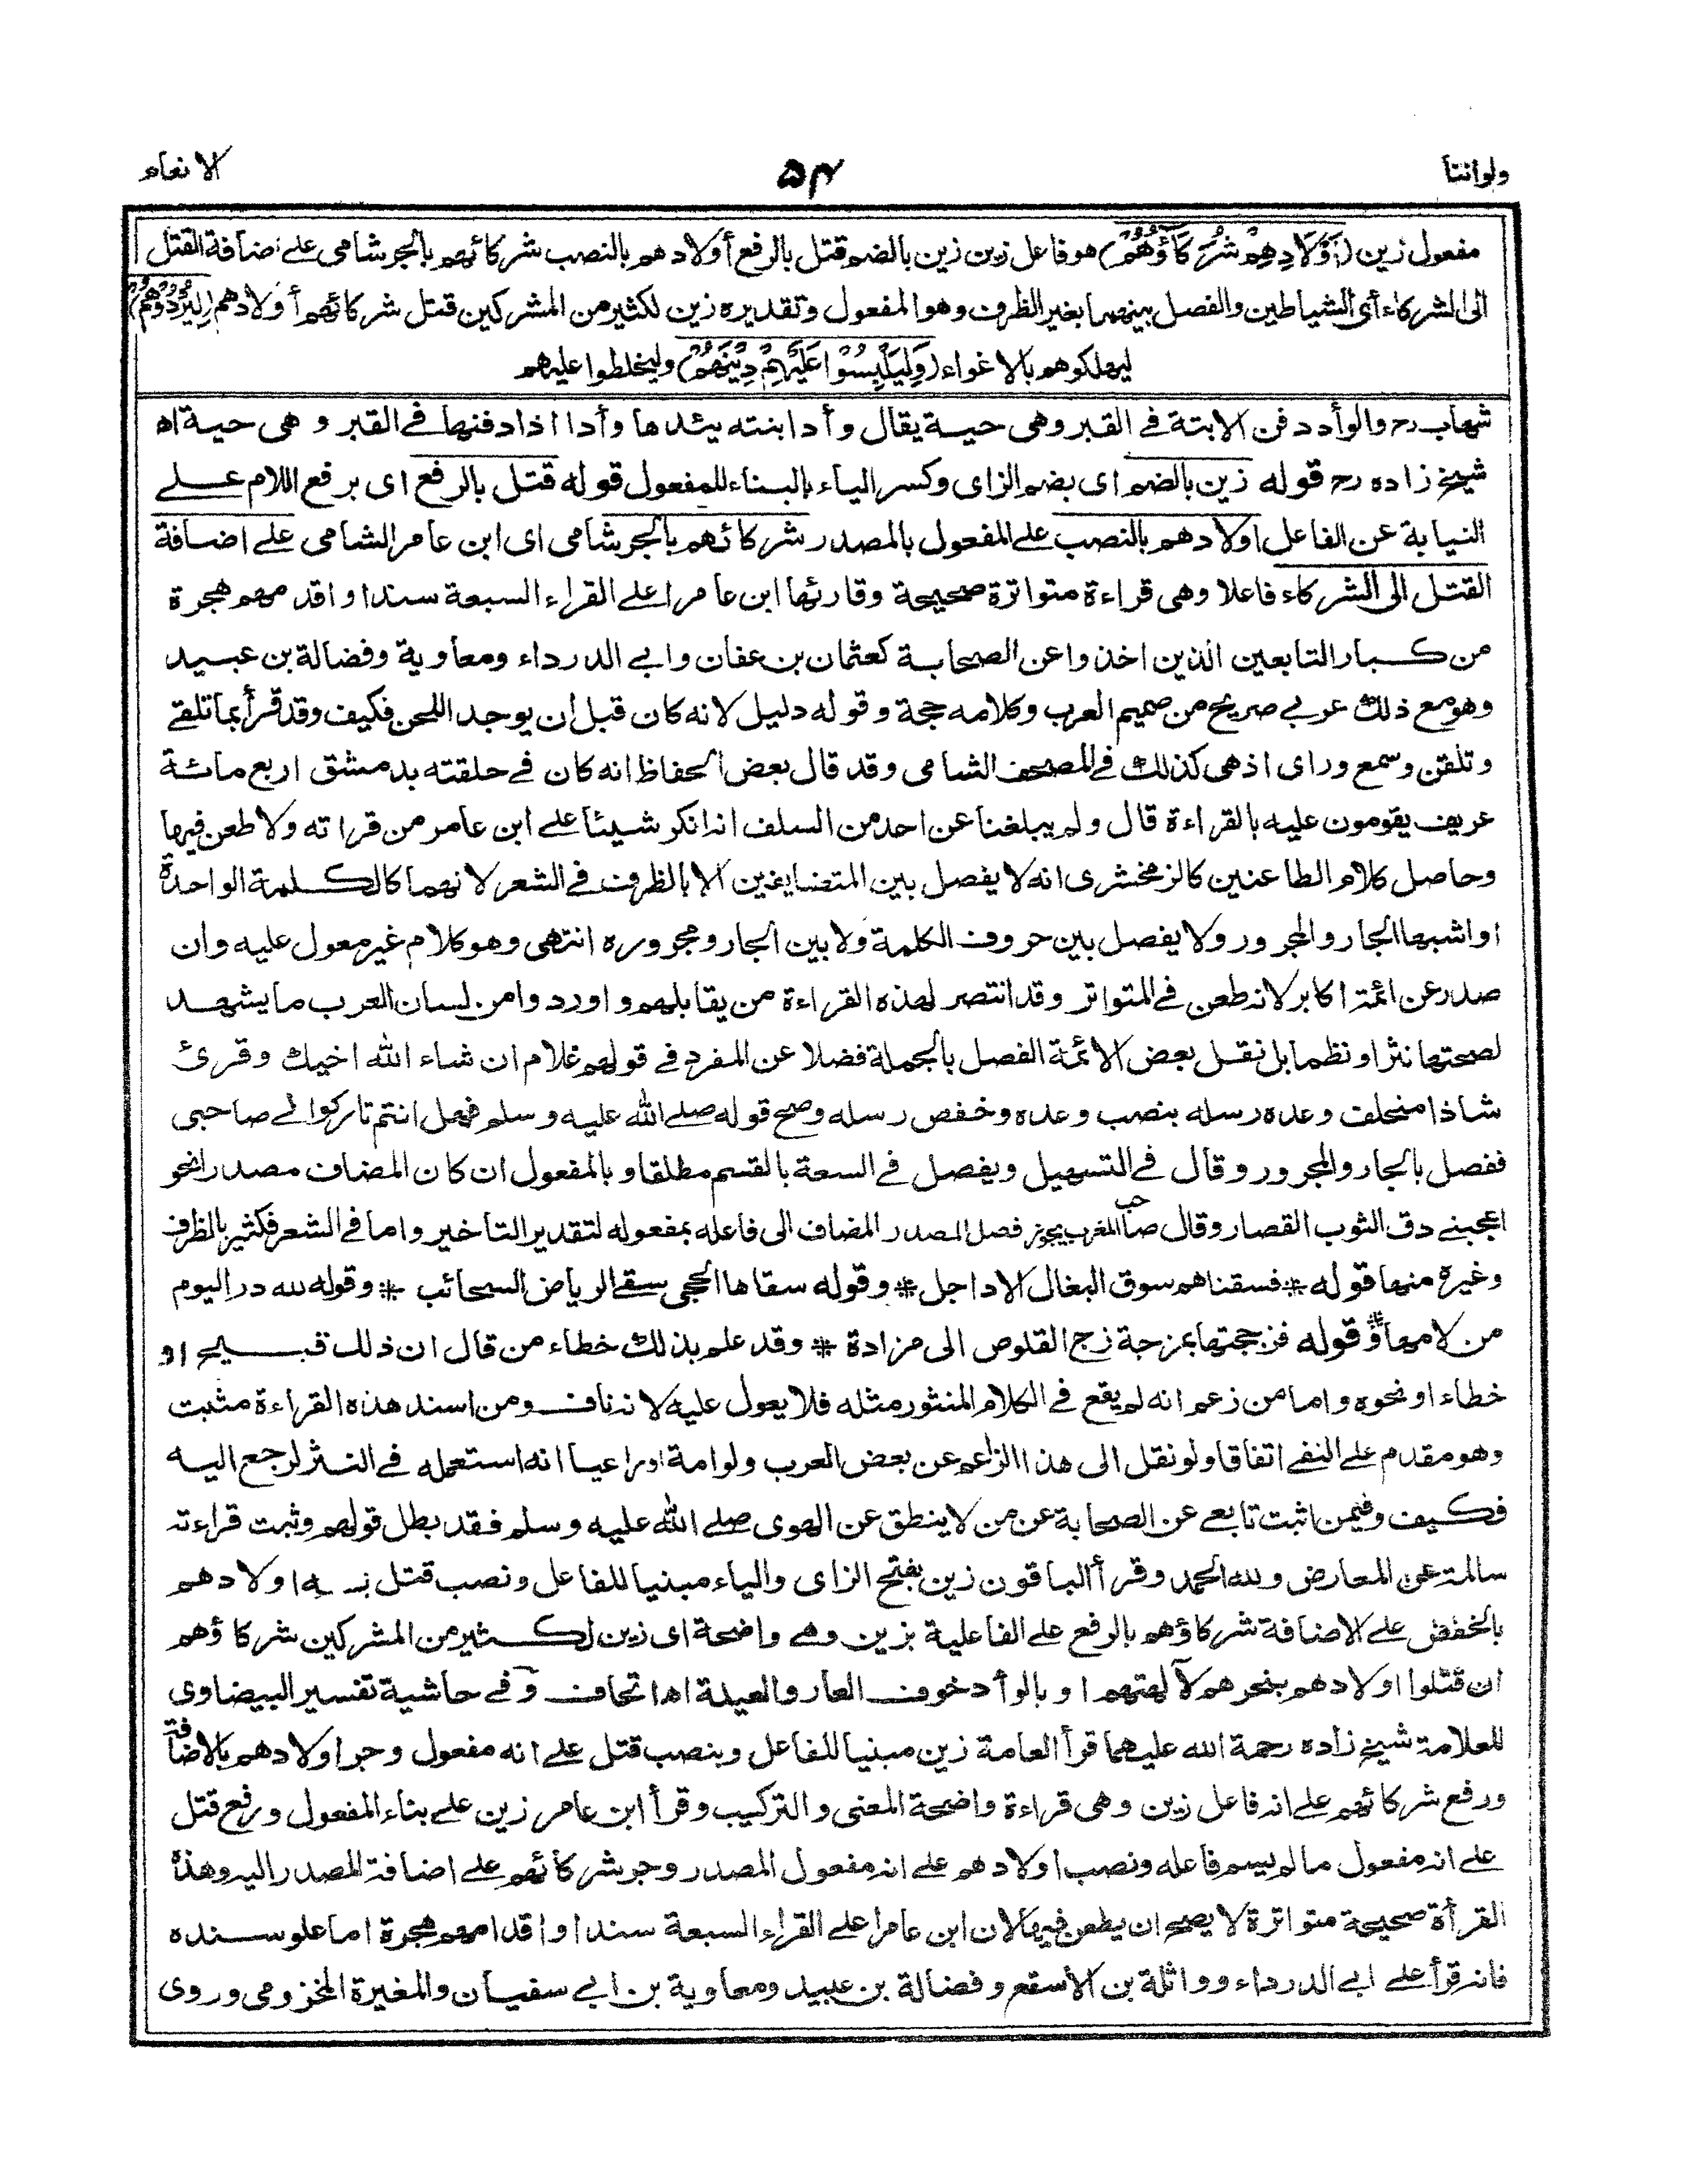 ولواننا ۵۴ الانعام
مفعول زين (أَوْلَادِهِمْ شُرَكَاؤُهُمْ) هو فاعل زين زين بالضم قتل بالرفع أولادهم بالنصب شركائهم بالجر شامى على اضافة القتل
الى الشركاء أى الشياطين والفصل بينهما بغير الظرف وهو المفعول وتقديره زين لكثير من المشركين قتل شركائهم أولادهم (لِيُرْدُوهُمْ)
ليهلكوهم بالاغواء (وَلِيَلْبِسُوْا عَلَيْهِمْ دِيْنَهُمْ) وليخلطوا عليهم
شهاب رح والوأد دفن الابتة فى القبر وهى حية يقال وأد ابنته يئدها وأدا اذا دفنها فى القبر و هى حية اه
شيخ زاده رح قوله زين بالضم اى بضم الزاى وكسر الياء بالبناء للمفعول قوله قتل بالرفع اى برفع اللام على
النيابة عن الفاعل اولادهم بالنصب على المفعول بالمصدر شركائهم بالجر شامى اى ابن عامر الشامى على اضافة
القتل الى الشركاء فاعلا وهى قراءة متواترة صحيحة وقارئها ابن عامر اعلى القراء السبعة سندا واقدمهم هجرة
من كبار التابعين الذين اخذوا عن الصحابة كعثمان بن عفان وابى الدرداء ومعاوية وفضالة بن عبيد
وهو مع ذلك عربى صريح من صميم العرب وكلامه حجة وقوله دليل لانه كان قبل ان يوجد اللحن فكيف وقد قرأ بما تلقى
وتلقن وسمع وراى اذ هى كذلك فى المصحف الشامى وقد قال بعض الحفاظ انه كان فى حلقته بدمشق اربع مائة
عريف يقومون عليه بالقراءة قال ولم يبلغنا عن احد من السلف انه انكر شيئا على ابن عامر من قراته ولا طعن فيها
وحاصل كلام الطاعنين كالزمخشرى انه لا يفصل بين المتضايفين الا بالظرف فى الشعر لانهما كالكلمة الواحدة
او اشبها الجار والمجرور ولا يفصل بين حروف الكلمة ولا بين الجار ومجروره انتهى وهو كلام غير معول عليه وان
صدر عن ائمة اكابر لانه طعن فى المتواتر وقد انتصر لهذه القراءة من يقابلهم واوردوا من لسان العرب ما يشهد
لصحتها نثرا ونظما بل نقل بعض الائمة الفصل بالجملة فضلا عن المفرد فى قولهم غلام ان شاء الله اخيك وقرئ
شاذا مخلف وعده رسله بنصب وعده وخفض رسله وصح قوله صلى الله عليه وسلم فهل انتم تاركوا لى صاحبى
ففصل بالجار والمجرور وقال فى التسهيل ويفصل فى السعة بالقسم مطلقا وبالمفعول ان كان المضاف مصدرا نحو
اعجبنى دق الثوب القصار وقال صاحب المغرب يجوز فصل المصدر المضاف الى فاعله بمفعوله لتقدير التأخير واما فى الشعر فكثير بالظرف
وغيره منها قوله * فسقناهم سوق البغال الاداجل * وقوله سقاها الحجى سقى الرياض السحائب * وقوله لله در اليوم
من لامها * وقوله فزججتها بمزجة زج القلوص الى مزادة * وقد علم بذلك خطاء من قال ان ذلك قبيح او
خطاء او نحوه واما من زعم انه لم يقع فى الكلام المنثور مثله فلا يعول عليه لانه ناف ومن اسند هذه القراءة مثبت
وهو مقدم على النفى اتفاقا ولو نقل الى هذا الزاعم عن بعض العرب ولو امة او راعيا انه استعمله فى النثر لرجع اليه
فكيف وفيمن اثبت تابعى عن الصحابة عن من لا ينطق عن الهوى صلى الله عليه وسلم فقد بطل قولهم وثبت قراءته
سالمة عن المعارض ولله الحمد وقرأ الباقون زين بفتح الزاى والياء مبنيا للفاعل ونصب قتل به اولادهم
بالخفض على الاضافة شركاؤهم بالرفع على الفاعلية بزين وهى واضحة اى زين لكثير من المشركين شركاؤهم
ان قتلوا اولادهم بنحرهم لآلهتهم او بالوأد خوف العار والعيلة اه اتحاف و فى حاشية تفسير البيضاوى
للعلامة شيخ زاده رحمة الله عليهما قرأ العامة زين مبنيا للفاعل وبنصب قتل على انه مفعول وجر اولادهم بالاضافة
ورفع شركائهم على انه فاعل زين وهى قراءة واضحة المعنى والتركيب وقرأ ابن عامر زين على بناء المفعول ورفع قتل
على انه مفعول ما لم يسم فاعله ونصب اولادهم على انه مفعول المصدر وجر شركائهم على اضافة المصدر اليه وهذه
القرأة صحيحة متواترة لا يصح ان يطعن فيها لان ابن عامر اعلى القراء السبعة سندا واقدامهم هجرة اما علو سنده
فانه قرأ على ابى الدرداء وواثلة بن الأسقع وفضالة بن عبيد ومعاوية بن ابى سفيان والمغيرة المخزومى وروى